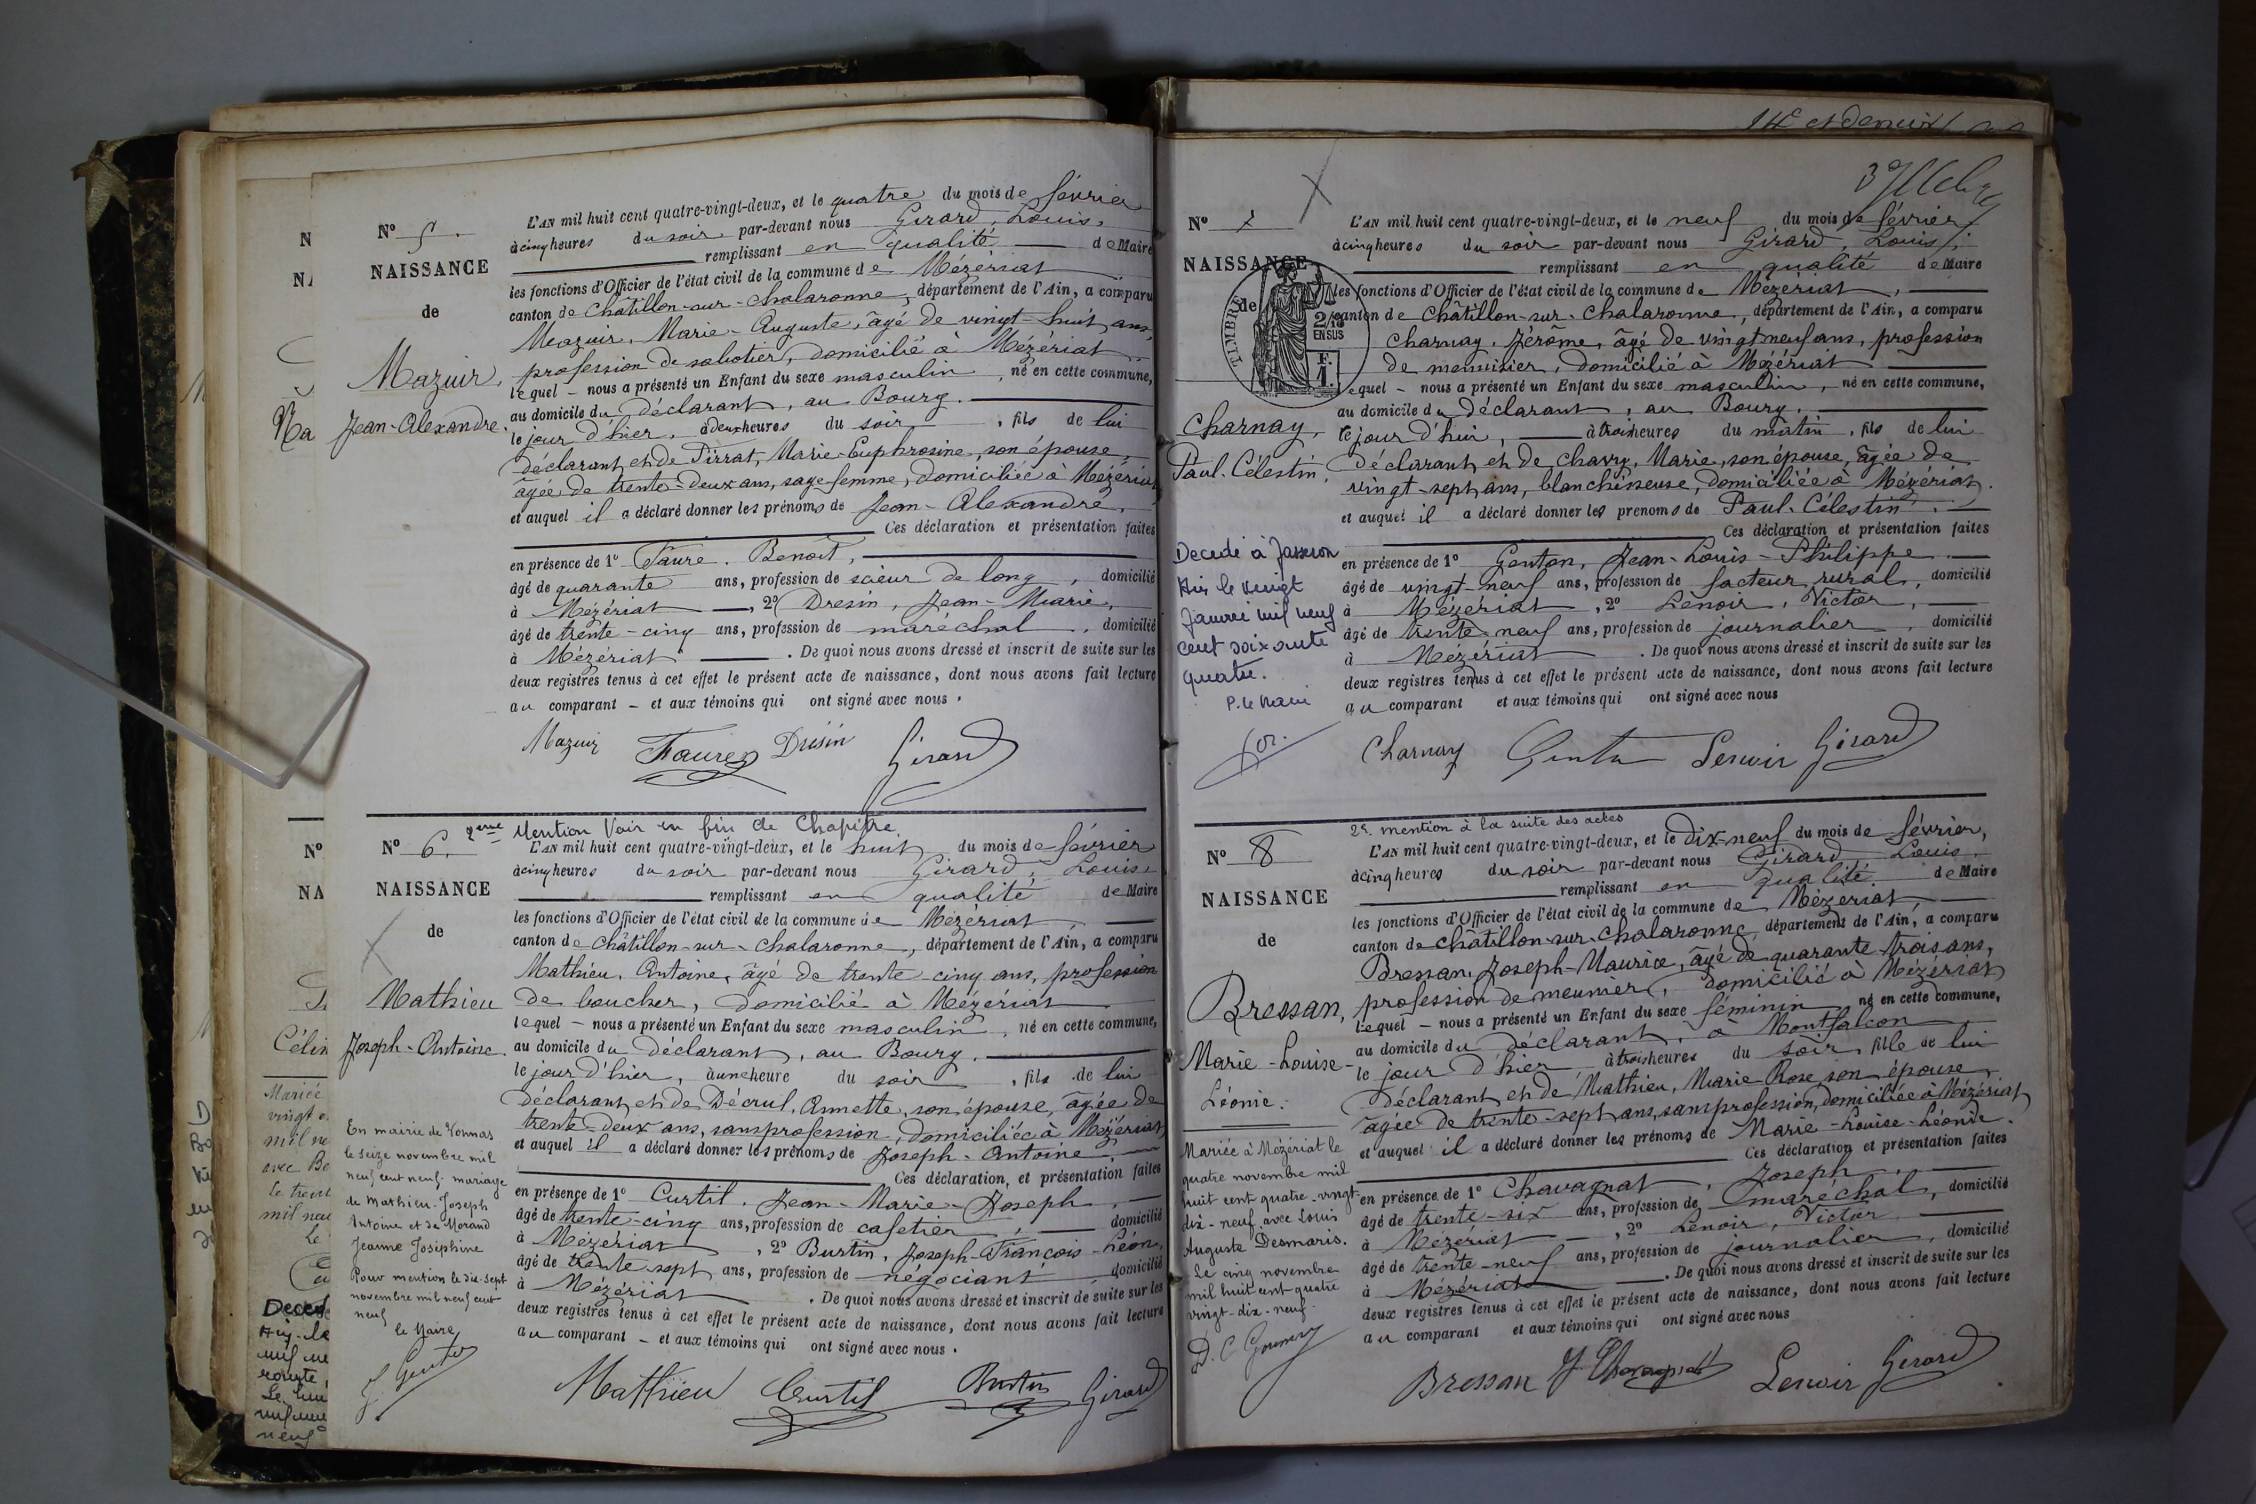 N° 5.
NAISSANCE
de
Mazuir,
Jean-Alexandre.
L'AN mil huit cent quatre-vingt-deux, et le quatre du mois de février
à cinq heures du soir par-devant nous Girard, Louis,
remplissant en qualité de Maire
les fonctions d'Officier de l'état civil de la commune de Mézériat
canton de Châtillon-sur-Chalaronne, département de l'Ain, a comparu
Mazuir, Marie-Auguste, âgé de vingt-huit ans,
profession de sabotier, domicilié à Mézériat
lequel - nous a présenté un Enfant du sexe masculin, né en cette commune,
au domicile du déclarant, au Bourg.
le jour d'hier, à deux heures du soir, fils de lui
déclarant, et de Pirrat, Marie-Euphrosine, son épouse,
âgée de trente-deux ans, sage femme, domiciliée à Mézériat
et auquel il a déclaré donner les prénoms de Jean-Alexandre.
Ces déclaration et présentation faites
en présence de 1° Faure, Benoît,
âgé de quarante ans, profession de scieur de long, domicilié
à Mézériat, 2° Dresin, Jean-Marie,
âgé de trente-cinq ans, profession de maréchal, domicilié
à Mézériat. De quoi nous avons dressé et inscrit de suite sur les
deux registres tenus à cet effet le présent acte de naissance, dont nous avons fait lecture
au comparant - et aux témoins qui ont signé avec nous.
Mazuir Faure Drisin Girard
2eme Mention Voir en fin de Chapitre
N° 6.
NAISSANCE
de
Mathieu
Joseph-Antoine.
L'AN mil huit cent quatre-vingt-deux, et le huit du mois de février
à cinq heures du soir par-devant nous Girard, Louis,
remplissant en qualité de Maire
les fonctions d'Officier de l'état civil de la commune de Mézériat,
canton de Châtillon-sur-Chalaronne, département de l'Ain, a comparu
Mathieu, Antoine, âgé de trente-cinq ans, profession
de boucher, domicilié à Mézériat
lequel - nous a présenté un Enfant du sexe masculin, né en cette commune,
au domicile du déclarant, au Bourg.
le jour d'hier, à une heure du soir, fils de lui
déclarant, et de Décrul, Annette, son épouse, âgée de
trente-deux ans, sans profession, domiciliée à Mézériat
et auquel il a déclaré donner les prénoms de Joseph-Antoine.
Ces déclaration et présentation faites
en présence de 1° Curtil, Jean-Marie-Joseph,
âgé de trente-cinq ans, profession de cafetier, domicilié
à Mézériat, 2° Burtin, Joseph-François-Léon,
âgé de trente sept ans, profession de négociant domicilié
à Mézériat. De quoi nous avons dressé et inscrit de suite sur les
deux registres tenus à cet effet le présent acte de naissance, dont nous avons fait lecture
au comparant - et aux témoins qui ont signé avec nous.
Mathieu Curtil Burtin Girard
En mairie de Vonnas
le seize novembre mil
neuf cent neuf, mariage
de Mathieu Joseph
Antoine et de Morand
Jeanne Joséphine
Pour mention le dix-sept
novembre mil neuf cent
neuf
le Maire
N° 7
NAISSANCE
de
TIMBRE
2/10
EN SUS
F.
1.
Charnay,
Paul-Célestin,
L'AN mil huit cent quatre-vingt-deux, et le neuf du mois de février,
à cinq heures du soir par-devant nous Girard, Louis,
remplissant en qualité de Maire
les fonctions d'Officier de l'état civil de la commune de Mézériat,
canton de Châtillon-sur-Chalaronne, département de l'Ain, a comparu
Charnay, Jérôme, âgé de vingt neuf ans, profession
de menuisier, domicilié à Mézériat
lequel - nous a présenté un Enfant du sexe masculin, né en cette commune,
au domicile du déclarant, au Bourg.
le jour d'hui, à trois heures du matin, fils de lui
déclarant, et de Chavry, Marie, son épouse, âgée de
vingt-sept ans, blanchisseuse, domiciliée à Mézériat.
et auquel il a déclaré donner les prénoms de Paul-Célestin.
Ces déclaration et présentation faites
en présence de 1° Genton, Jean-Louis-Philippe
âgé de vingt-neuf ans, profession de facteur rural, domicilié
à Mézériat, 2° Lenoir, Victor,
âgé de trente neuf ans, profession de journalier, domicilié
à Mézériat. De quoi nous avons dressé et inscrit de suite sur les
deux registres tenus à cet effet le présent acte de naissance, dont nous avons fait lecture
au comparant et aux témoins qui ont signé avec nous
Charnay Lenoir Girard
Décédé à Jasseron
Ain le vingt
Janvier mil neuf
cent soixante
quatre.
P. le Maire
2e. mention à la suite des actes
N° 8
NAISSANCE
de
Bressan,
Marie-Louise-
Léonie.
L'AN mil huit cent quatre-vingt-deux, et le dix-neuf du mois de février,
à cinq heures du soir par-devant nous Girard Louis,
remplissant en qualité de Maire
les fonctions d'Officier de l'état civil de la commune de Mézériat,
canton de Châtillon-sur-Chalaronne département de l'Ain, a comparu
Bressan, Joseph-Maurice, âgé de quarante-trois ans,
profession de meunier, domicilié à Mézériat
lequel - nous a présenté un Enfant du sexe féminin né en cette commune,
au domicile du déclarant, à Montfalcon
le jour d'hier à trois heures du soir, fille de lui
déclarant et de Mathieu, Marie-Rose, son épouse,
âgée de trente-sept ans, sans profession, domiciliée à Mézériat
et auquel il a déclaré donner les prénoms de Marie-Louise-Léonie.
Ces déclaration et présentation faites
en présence de 1° Chavagnat, Joseph,
âgé de trente-six ans, profession de maréchal, domicilié
à Mézériat, 2° Lenoir, Victor
âgé de trente-neuf ans, profession de journalier, domicilié
à Mézériat. De quoi nous avons dressé et inscrit de suite sur les
deux registres tenus à cet effet le présent acte de naissance, dont nous avons fait lecture
au comparant et aux témoins qui ont signé avec nous
Bressan J. Chavagnat Lenoir Girard
Mariée à Mézériat le
quatre novembre mil
huit cent quatre-vingt
dix-neuf avec Louis
Auguste Desmaris.
Le cinq novembre
mil huit cent quatre
vingt-dix-neuf.